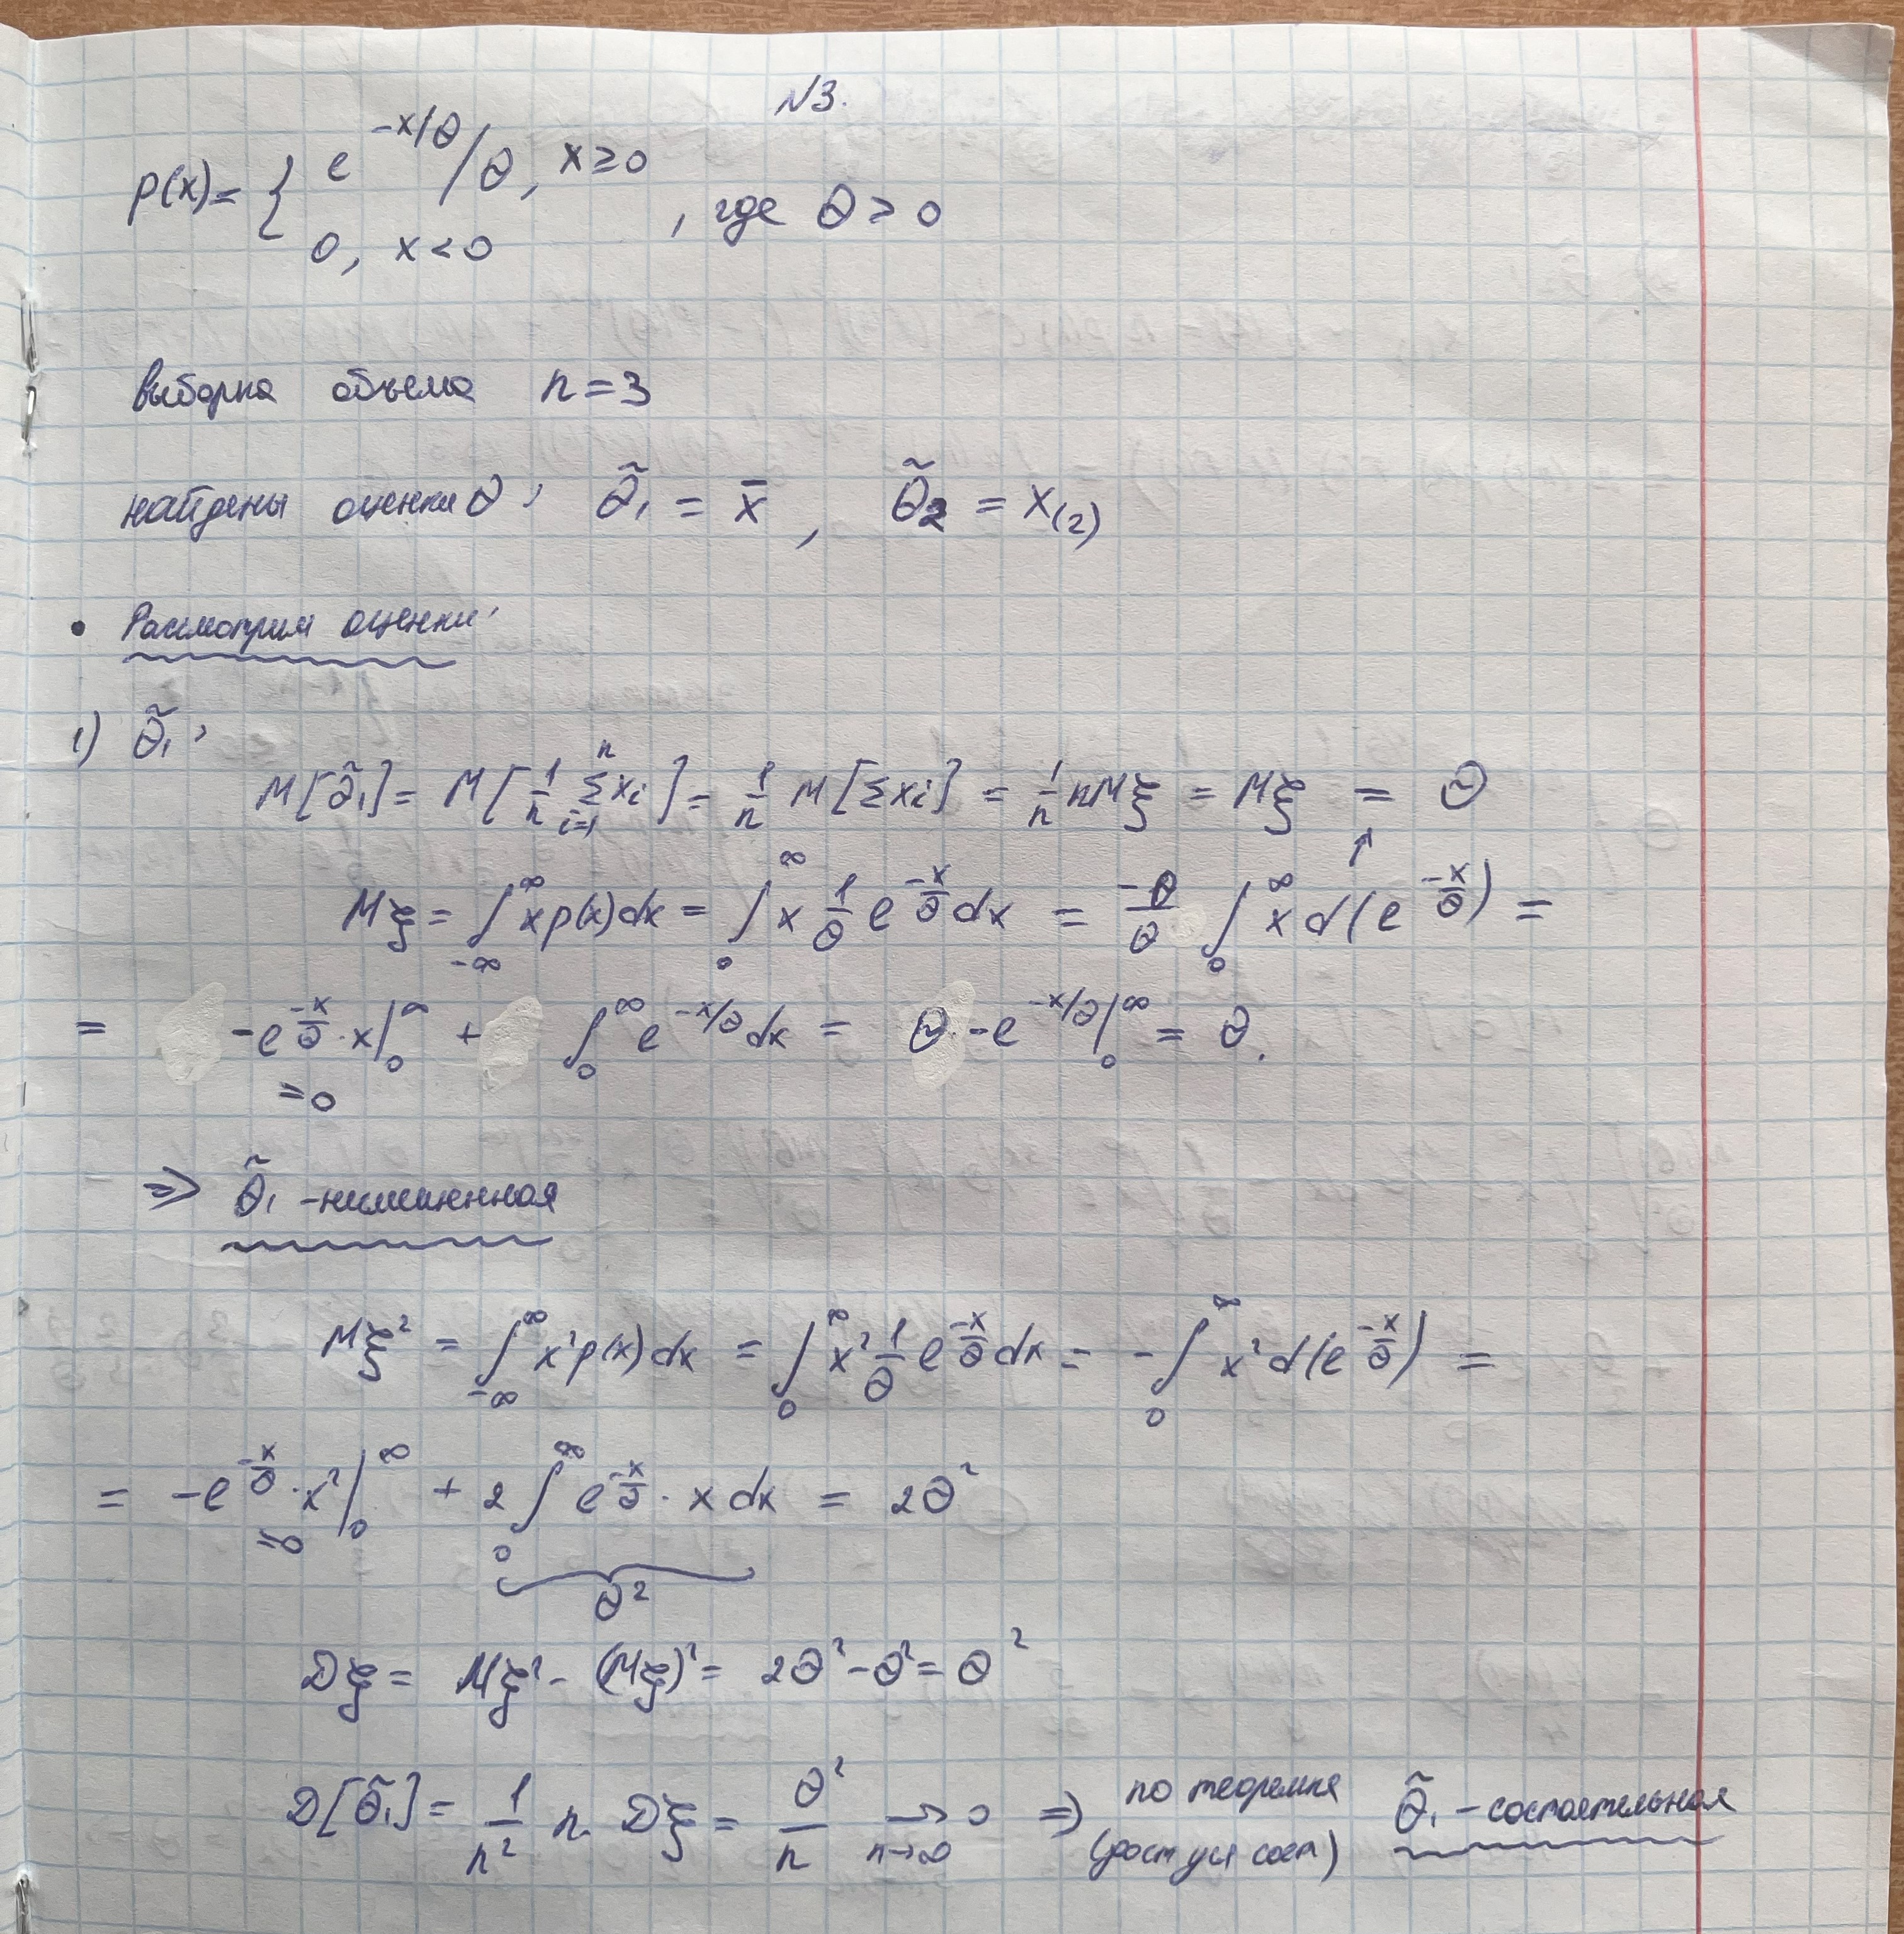 N3.
p(x) = { e^{-x/θ}/θ, x ≥ 0
0, x < 0 , где θ > 0
выборка объема n = 3
найдены оценки θ: θ̃₁ = x̄ , θ̃₂ = x₍₂₎
• Рассмотрим оценки:
1) θ̃₁:
M[θ̃₁] = M[1/n Σ_{i=1}^{n} xᵢ] = 1/n M[Σxᵢ] = 1/n nMξ = Mξ = θ
↑
Mξ = ∫_{-∞}^{∞} x p(x) dx = ∫_{0}^{∞} x 1/θ e^{-x/θ} dx = -θ/θ ∫_{0}^{∞} x d(e^{-x/θ}) =
= -e^{-x/θ} · x |_{0}^{∞} + ∫_{0}^{∞} e^{-x/θ} dx = θ · -e^{-x/θ} |_{0}^{∞} = θ.
= 0
⇒ θ̃₁ - несмещенная
Mξ² = ∫_{-∞}^{∞} x² p(x) dx = ∫_{0}^{∞} x² 1/θ e^{-x/θ} dx = - ∫_{0}^{∞} x² d(e^{-x/θ}) =
= -e^{-x/θ} · x² |_{0}^{∞} + 2 ∫_{0}^{∞} e^{-x/θ} · x dx = 2θ²
= 0
θ²
Dξ = Mξ² - (Mξ)² = 2θ² - θ² = θ²
D[θ̃₁] = 1/n² n · Dξ = θ²/n → 0 n→∞ ⇒ по теореме θ̃₁ - состоятельная
(дост усл сост)